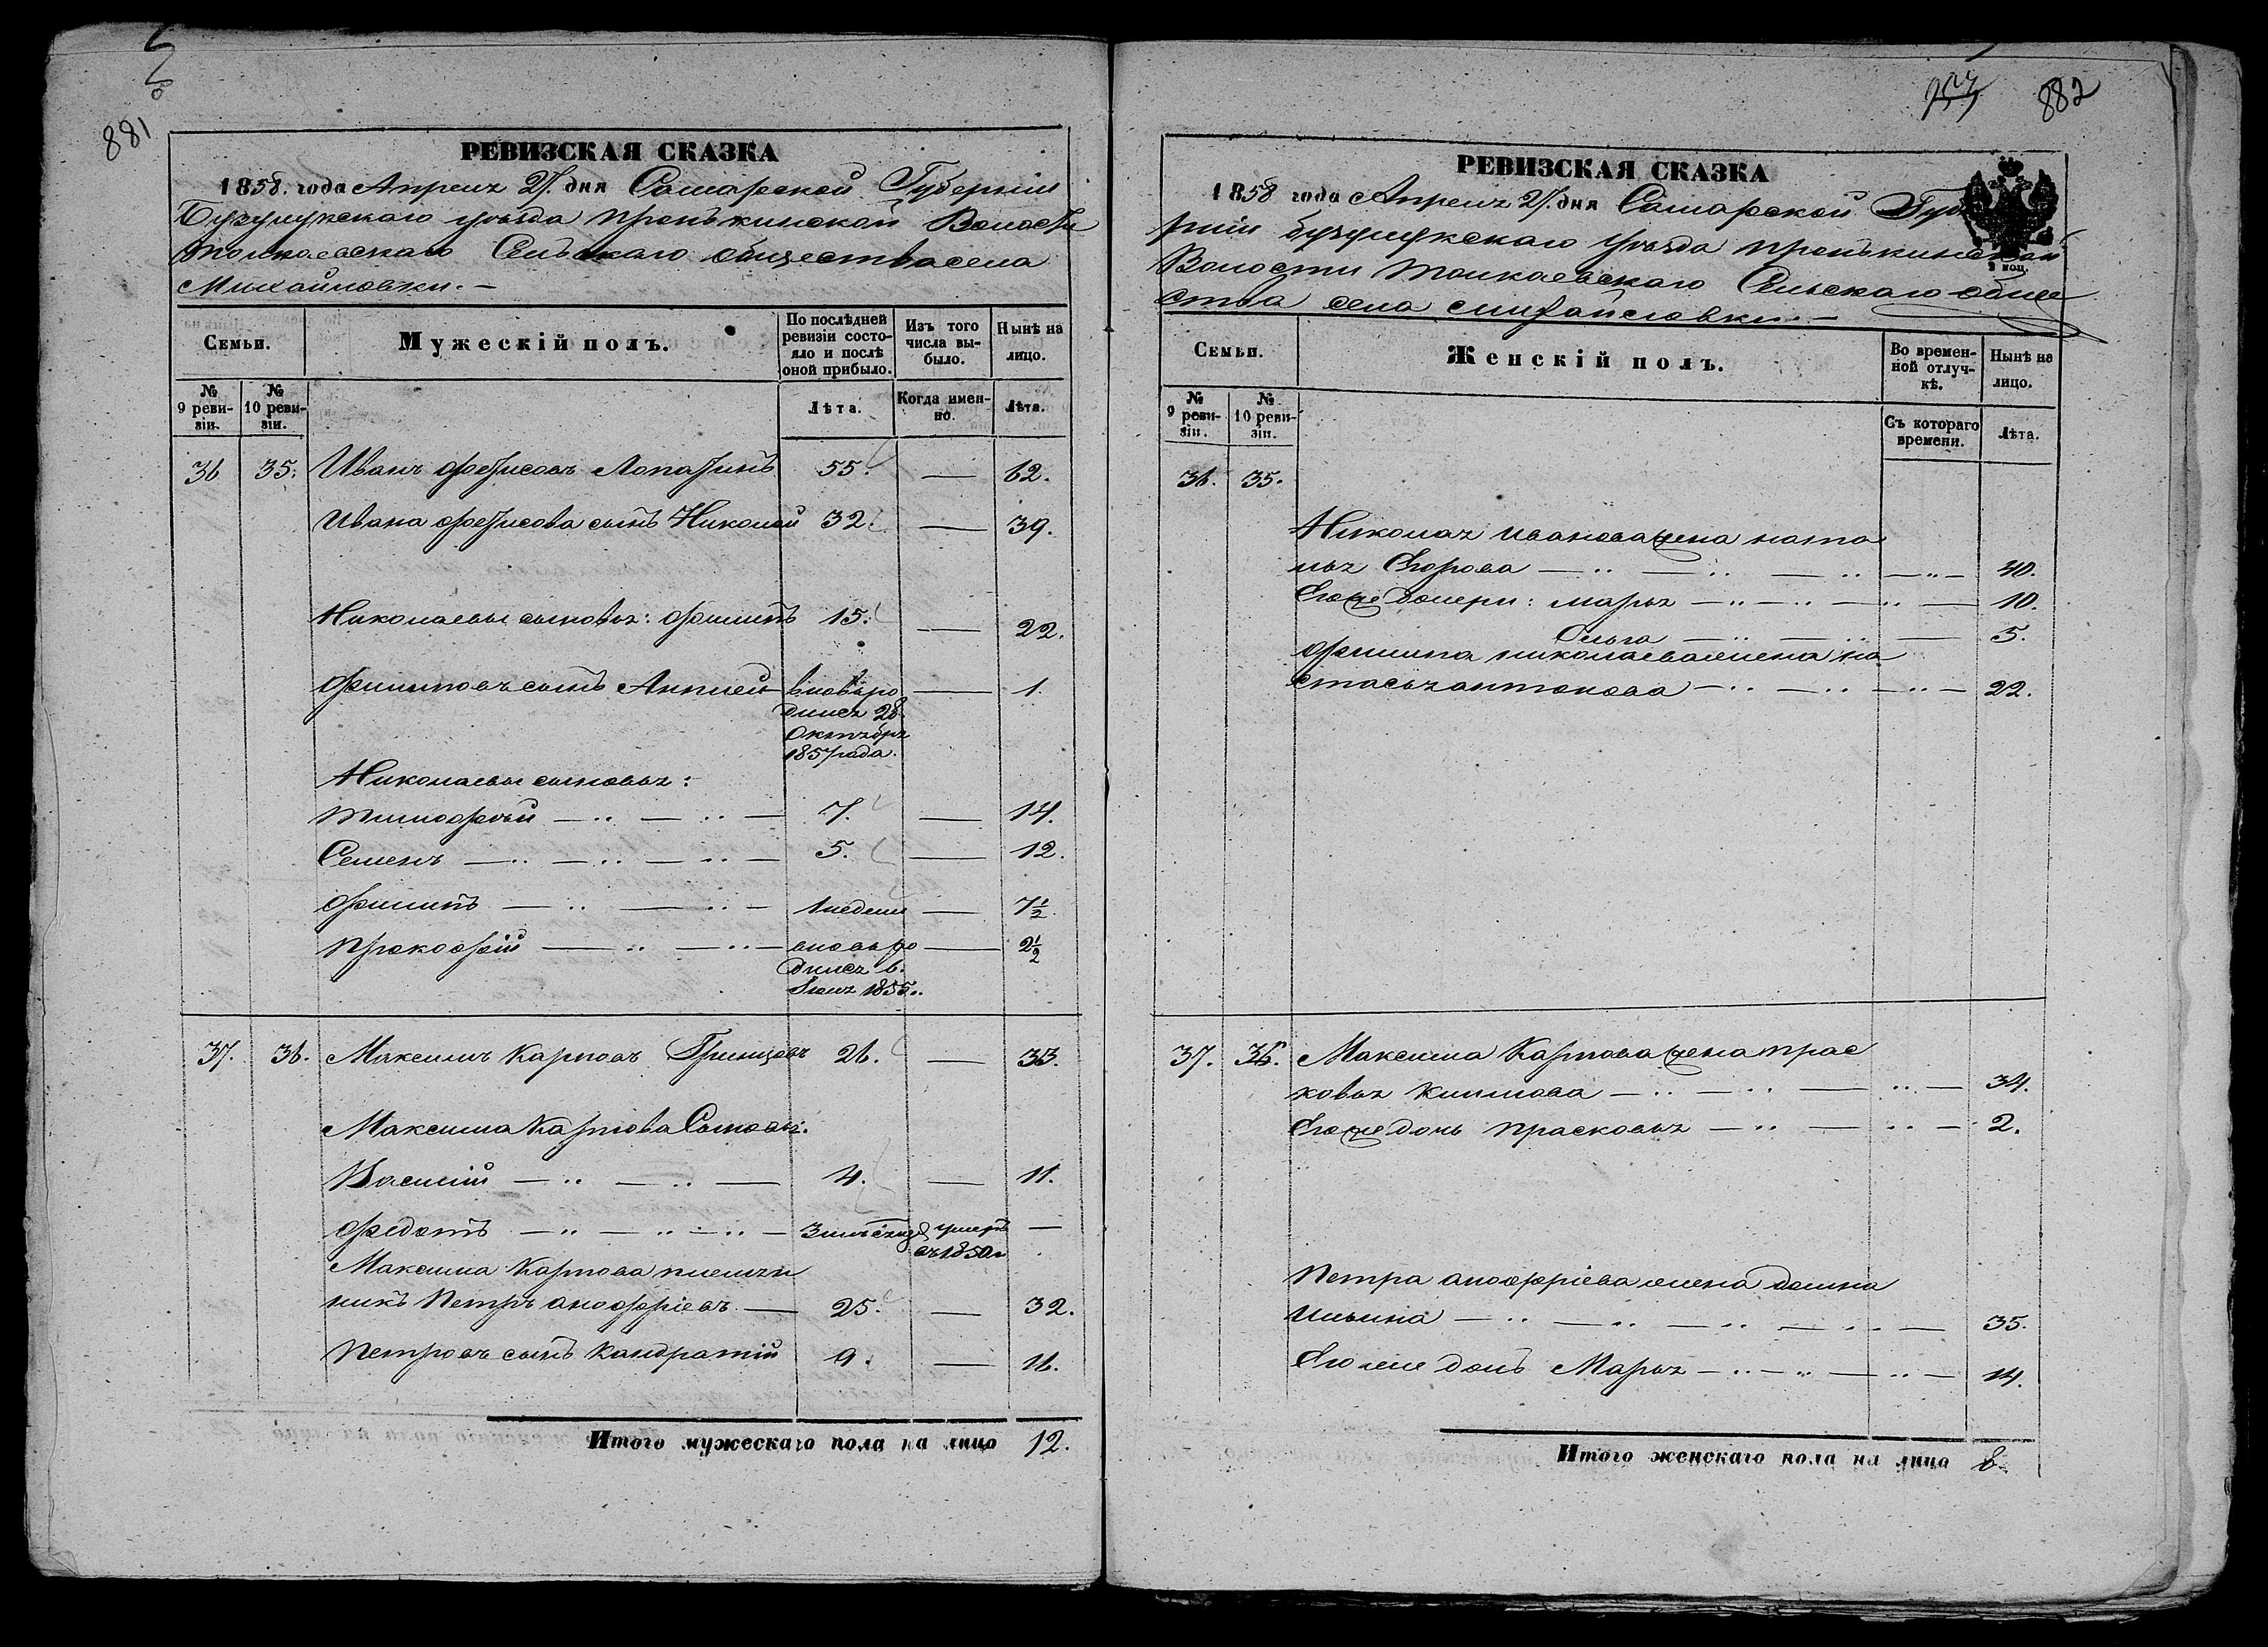 881
РЕВИЗСКАЯ СКАЗКА
1858. года Апреля 27. дня Самарской Губерніи
Бузулукскаго уѣзда Пронькинской Волости
Толкаевскаго Сельскаго общества села
Михайловки. –
Семьи.
Мужескій полъ.
По послѣдней ревизіи состояло и послѣ оной прибыло.
Изъ того числа выбыло.
Нынѣ на лицо.
№ 9 ревизіи.
№ 10 ревизіи.
Лѣта.
Когда именно.
Лѣта.
36 35. Иванъ Фетисовъ Лопатинъ 55. — 62.
Ивана Фетисова сынъ Николай 32. — 39.
Николаевы сыновья: Филипъ 15. — 22.
Филиповъ сынъ Анпилей вновь ро — 1.
дился 28
Октября
1857 года.
Николаевы сыновья:
Тимофей — 7. — 14.
Семенъ — 5. — 12.
Филипъ — 1 недели — 7½
Прокофій — вновь ро — 2½
дился 6.
1855.
37. 36. Максимъ Карповъ 26. — 33.
Максима Карпова Сыновья:
Василій — 4. — 11.
Федотъ — 3 месяцъ умеръ —
въ 1850 г
Максима Карпова племян
никъ Петръ Аноффріевъ — 25. — 32.
Петровъ сынъ Кандратій 9. — 16.
Итого мужескаго пола на лицо 12.
882
РЕВИЗСКАЯ СКАЗКА
1858 года Апреля 27. дня Самарской Губе
рніи Бузулукскаго Уѣзда Пронькинской
Волости Толкаевскаго Сельскаго обще
ства села Михайловки. –
Семьи.
Женскій полъ.
Во временной отлучкѣ.
Нынѣ на лицо.
№ 9 ревизіи.
№ 10 ревизіи.
Съ котораго времени.
Лѣта.
36. 35.
Николая Иванова жена Ната
лья Егорова — 40.
Егоже дочери: Марья — 10.
Ольга — 5.
Филипа Николаева жена На
стасья Антонова — 22.
37. 36. Максима Карпова жена Прас
ковья — 34.
Егоже дочь Прасковья — 2.
Петра Аноффріева жена Домна
Ильина — 35.
Егоже дочь Марья — 14.
Итого женскаго пола на лицо 8.